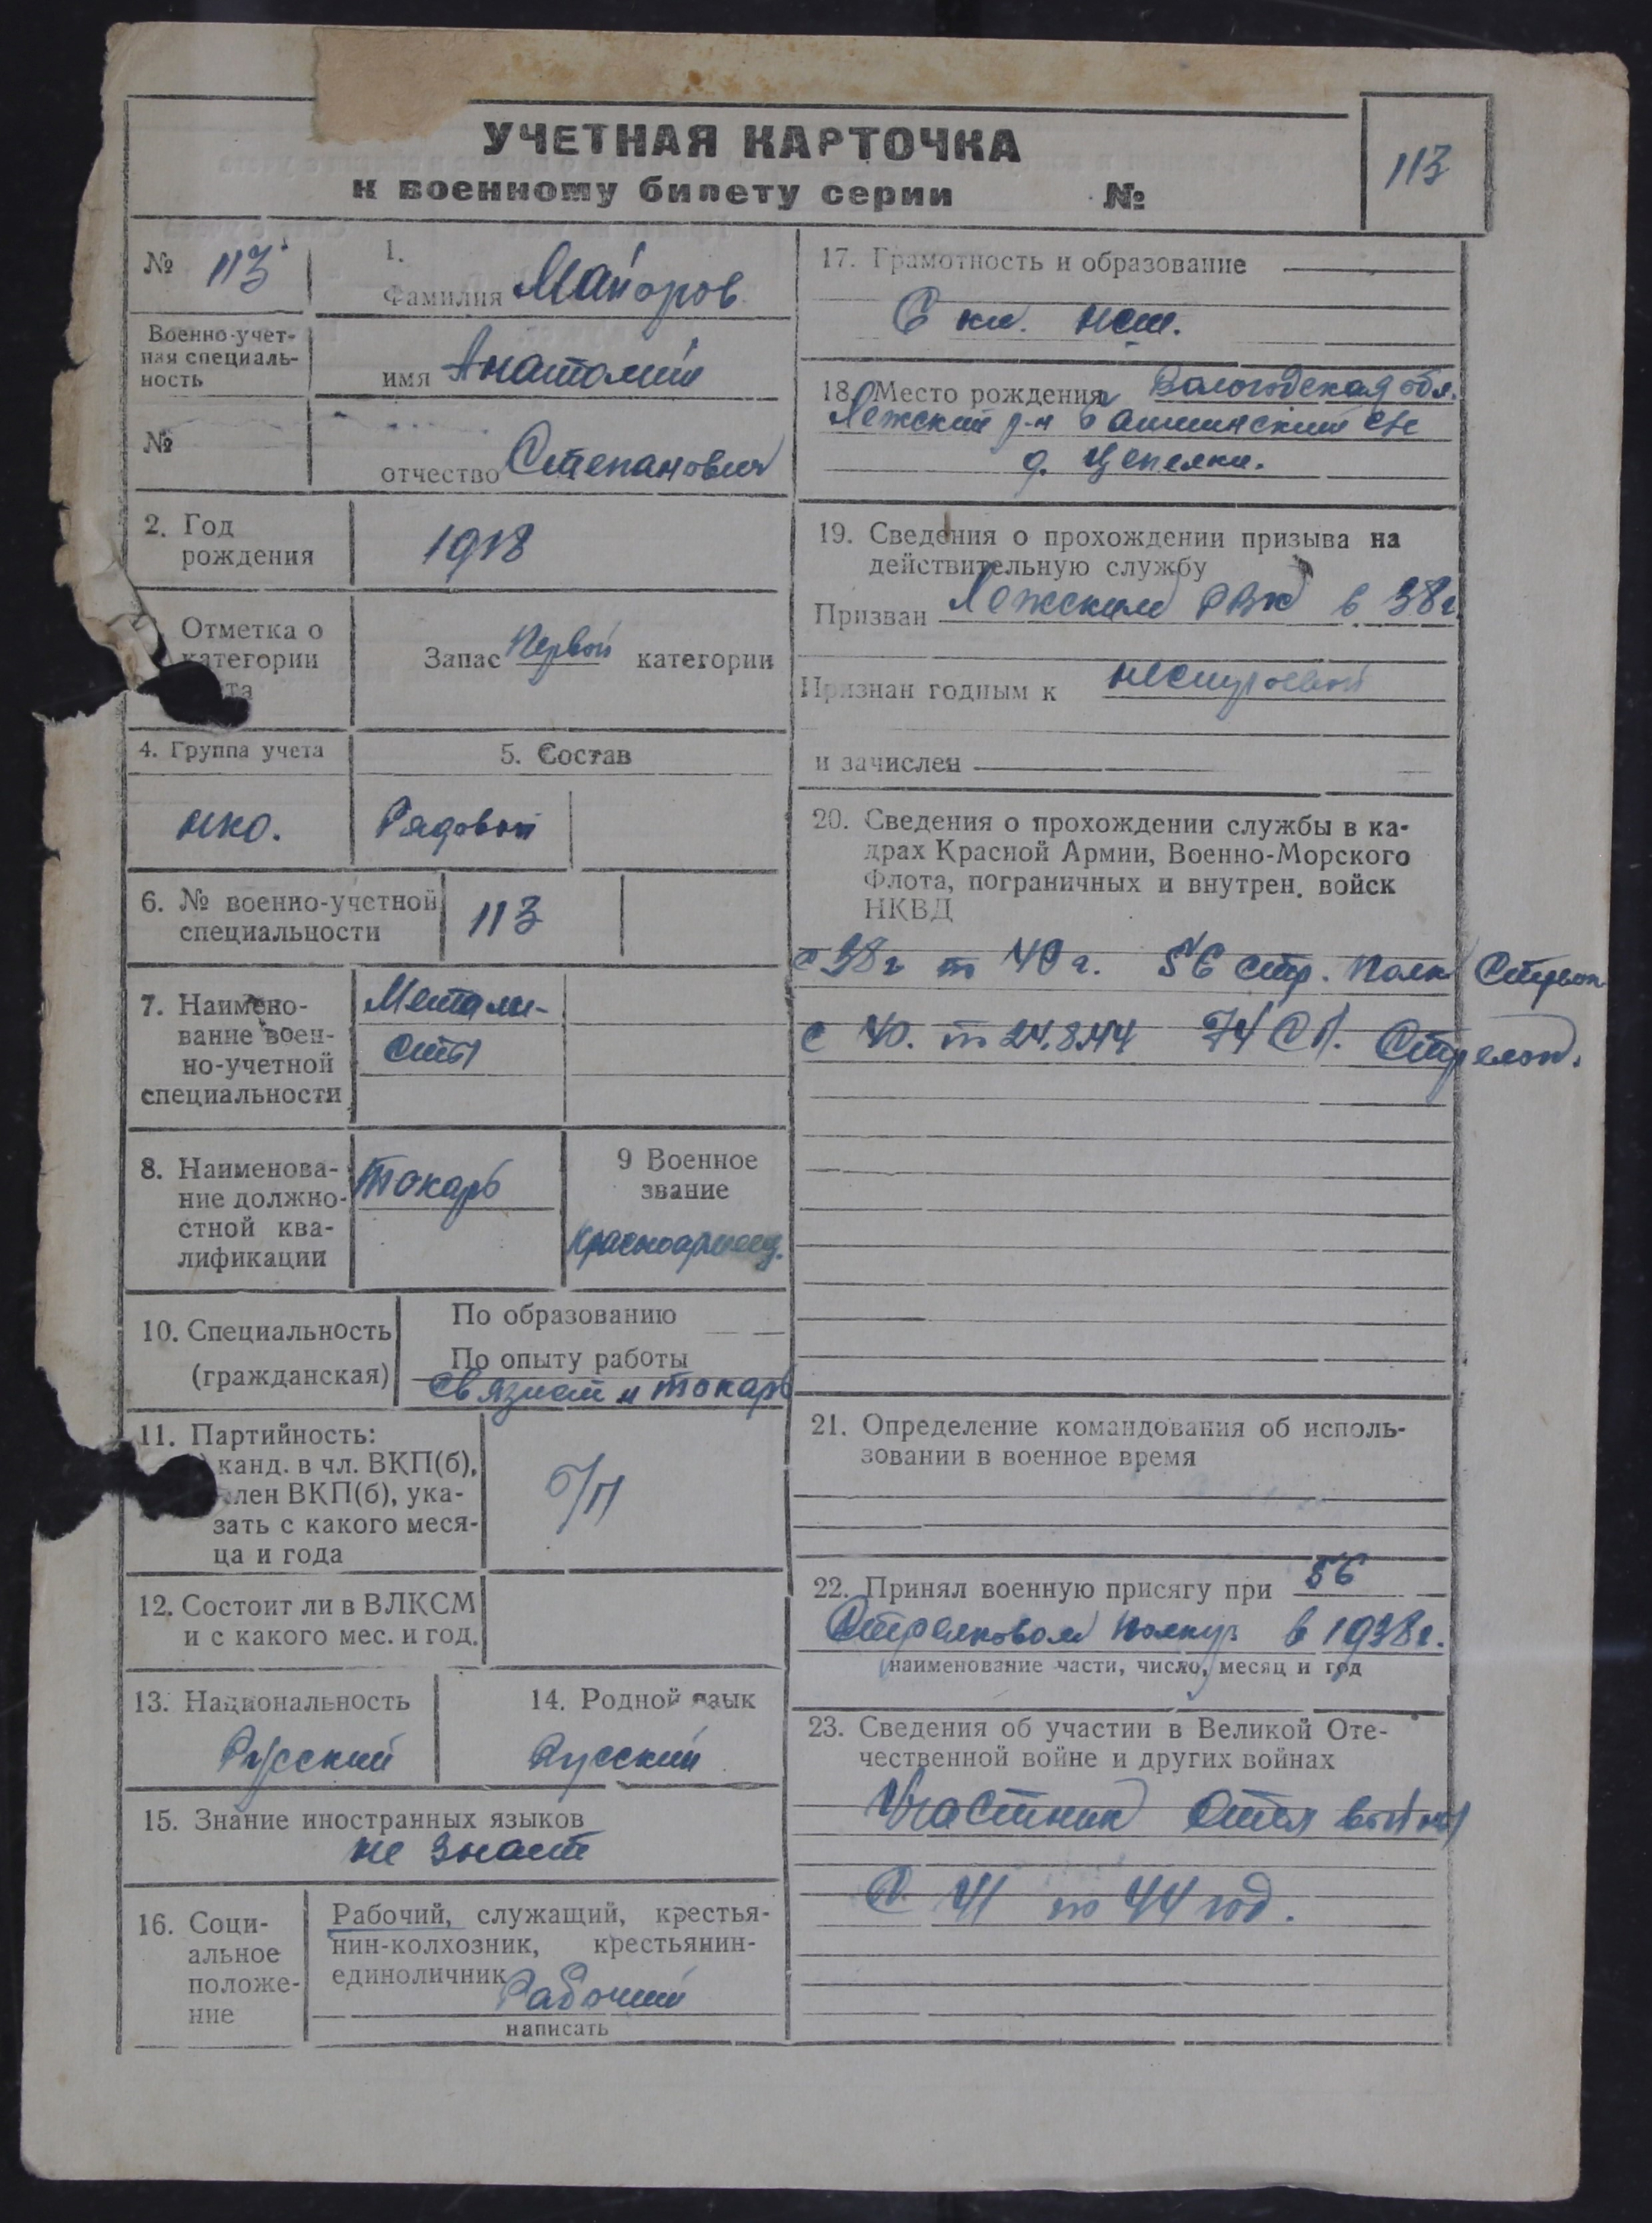 УЧЕТНАЯ КАРТОЧКА
к военному билету серии №
113
№ 113
1.
Фамилия Майоров
Военно-учет-
ная специаль-
ность
имя Анатолий
№
отчество Степанович
2. Год
рождения
1918
Отметка о
категории
та
Запас Первой категории
4. Группа учета
нко.
5. Состав
Рядовой
6. № военно-учетной
специальности
113
7. Наимено-
вание воен-
но-учетной
специальности
Метали-
сты
8. Наименова-
ние должно-
стной ква-
лификации
токарь
9 Военное
звание
Красноармеец.
10. Специальность
(гражданская)
По образованию
По опыту работы
Связист и токарь
11. Партийность:
канд. в чл. ВКП(б),
член ВКП(б), ука-
зать с какого меся-
ца и года
б/п
12. Состоит ли в ВЛКСМ
и с какого мес. и год.
13. Национальность
Русский
14. Родной язык
Русский
15. Знание иностранных языков
не знает
16. Соци-
альное
положе-
ние
Рабочий, служащий, крестья-
нин-колхозник, крестьянин-
единоличник
Рабочий
написать
17. Грамотность и образование
6 кл. нсш.
18. Место рождения Вологодская обл.
Лежский р-н с/с
д. Цепелки.
19. Сведения о прохождении призыва на
действительную службу
Призван Лежским РВК в 38г
Признан годным к нестроевой
и зачислен
20. Сведения о прохождении службы в ка-
драх Красной Армии, Военно-Морского
Флота, пограничных и внутрен. войск
НКВД
с 38г по 40г. 56 стр. полк Стрелок
с 40. по 24.8.44 74 СП. Стрелок.
21. Определение командования об исполь-
зовании в военное время
22. Принял военную присягу при 56
Стрелковом полку в 1938г.
наименование части, число, месяц и год
23. Сведения об участии в Великой Оте-
чественной войне и других войнах
Участник Отеч войны
С 41 по 44 год.